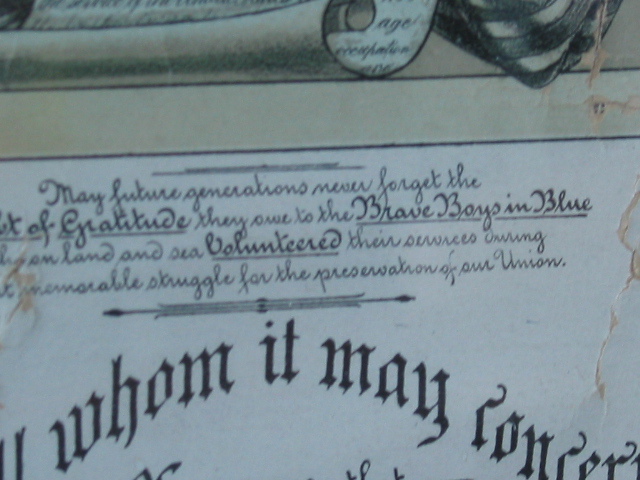 age
occupation
May future generations never forget the
of Gratitude they owe to the Brave Boys in Blue
on land and sea Volunteered their services during
memorable struggle for the preservation of our Union.
whom it may concern
that